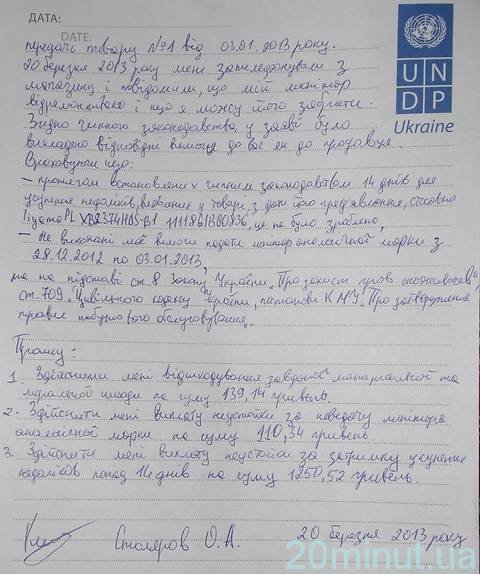 ДАТА:
DATE:
передачі товару №1 від 03.01.2013 року.
20 березня 2013 року мені зателефонували з
магазину і повідомили, що мій монітор
відремонтовано і що я можу його забрати.
Згідно чинного законодавства, у заяві було
викладено відповідні вимоги до вас як до продавця.
Враховуючи що:
– протягом встановлених чинним законодавством 14 днів для
усунення недоліків, виявлених у товарі, з дати його пред'явлення, стосовно
PL XB2374HDS-B1 1111861B00936, це не було зроблено,
– Не виконані мої вимоги надати монітор аналогічної марки з
28.12.2012 по 03.01.2013,
та на підставі ст. 8 Закону України „Про захист прав споживачів",
ст. 709 „Цивільного кодексу України, постанови КМУ „Про затвердження
правил побутового обслуговування"
Прошу:
1. Здійснити мені відшкодування завданої матеріальної та
моральної шкоди на суму 139,14 гривень.
2. Здійснити мені виплату неустойки за невидачу монітора
аналогічної марки на суму 110,34 гривень.
3. Здійснити мені виплату неустойки за затримку усунення
недоліків понад 14 днів на суму 1250,52 гривень.
Столяров О. А. 20 березня 2013 року
UN
DP
Ukraine
20minut.ua